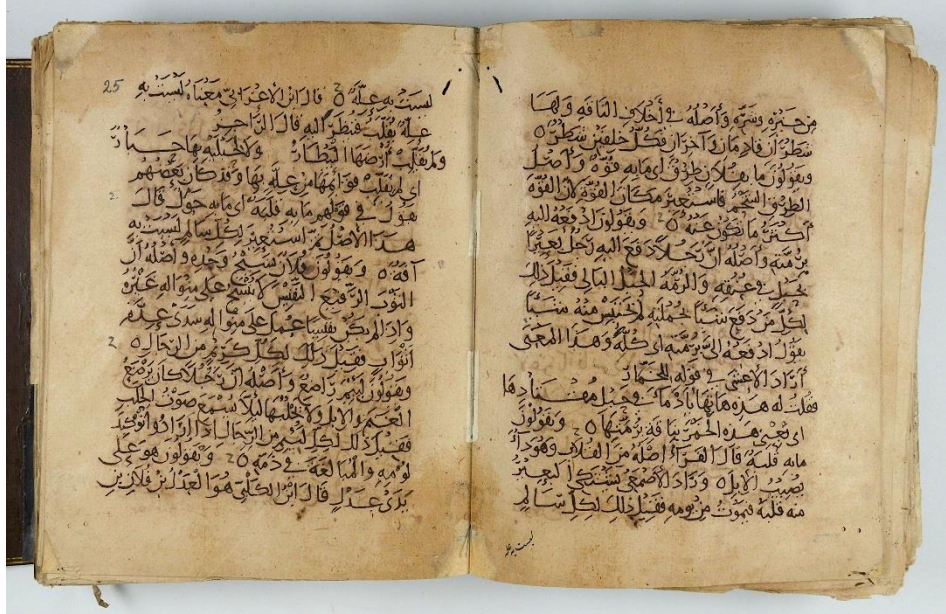 من خيره وشره وأصله في أخلاف الناقة ولها
شطران قادمان وآخران فكل خلفين شطر ٥
ويقولون ما بفلان طرق أي ما به قوة وأصل
الطرق الشحم فاستعير مكان القوة لأن القوة
أكثر ما تكون عنه ٥ ويقولون ادفعه إليه
برمته وأصله أن رجلا دفع إليه رجل بعيرا
بحبل في عنقه والرمة الحبل البالي فقيل ذلك
لكل من دفع شيئا بجملته لم يحتبس منه شيئا
يقول ادفعه إلي برمته أي كله وهذا المعنى
أراد الأعشى في قوله للخمار
فقلت له هذه هاتها بأدماء في حبل مقتادها
أي بعني هذه الخمر بناقة برمتها ٥ ويقولون
ما به قلبة قال الفراء أصله من القلاب وهو داء
يصيب الإبل ٥ وزاد الأصمعي يشتكي البعير
منه قلبه فيموت من يومه فقيل ذلك لكل سالم
ليست به علة
25
ليست به علة ٥ قال ابن الأعرابي معناه ليست به
علة يقلب فينظر إليه قال الراجز
ولم يقلب أرضها البيطار ولا لحبليه بها حبار
أي لم يقلب قوائمها من علة بها وقد كان بعضهم
يقول في قولهم ما به قلبة أي ما به حول قال
هذا الأصل ثم استعير لكل سالم ليست به
آفة ٥ ويقولون فلان نسيج وحده وأصله أن
الثوب الرفيع النفيس لا ينسج على منواله غيره
وإذا لم يكن نفيسا عمل على منواله سدى عدة
أثواب فقيل ذلك لكل كريم من الرجال ٥
ويقولون لئيم راضع وأصله أن رجلا كان يرضع
الغنم والإبل ولا يحلبها لئلا يسمع صوت الحلب
فقيل ذلك لكل لئيم من الرجال إذا أرادوا توكيد
لؤمه والمبالغة في ذمه ٥ ويقولون هو على
يدي عدل قال ابن الكلبي هو العدل بن فلان بن